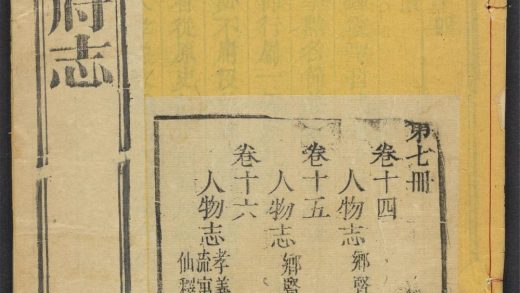 第七冊
卷十四
人物志 鄉賢
卷十五
人物志 鄉賢
卷十六
人物志 孝義
流寓
仙釋
府志